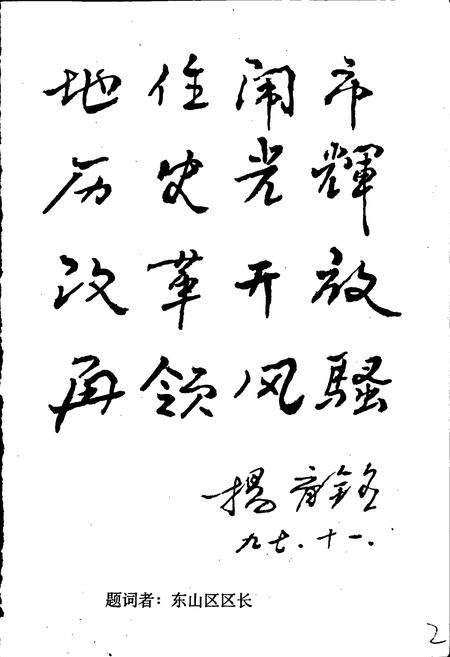 地住闹市
历史光輝
改革开放
再领风骚
楊
九七.十一.
题词者：东山区区长
2